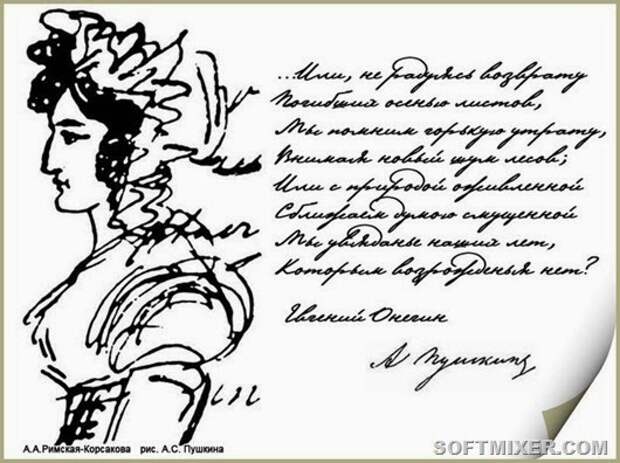 ...Или, не радуясь возврату
Погибших осенью листов,
Мы помним горькую утрату,
Внимая новый шум лесов;
Или с природой оживленной
Сближаем думою смущенной
Мы увяданье наших лет,
Которым возрожденья нет?
Евгений Онегин
А Пушкин
А.А.Римская-Корсакова рис. А.С. Пушкина
SOFTMIXER.COM